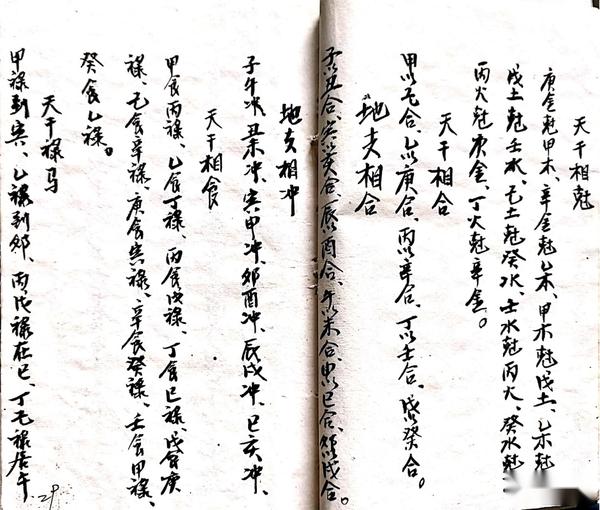 天干相尅
庚金尅甲木、辛金尅乙木、甲木尅戊土、乙木尅
戊土尅壬水、己土尅癸水、壬水尅丙火、癸水尅
丙火尅庚金、丁火尅辛金。
天干相合
甲以己合、乙以庚合、丙以辛合、丁以壬合、戊癸合。
地支相合
子以丑合、寅以亥合、辰以酉合、午以未合、申以巳合、卯以戌合。
地支相冲
子午冲、丑未冲、寅甲冲、卯酉冲、辰戌冲、巳亥冲、
天干相食
甲食丙禄、乙食丁禄、丙食戊禄、丁食巳禄、戊食庚
禄、己食辛禄、庚食禄、辛食癸禄、壬食甲禄、
癸食乙禄。
天干禄马
甲禄到寅、乙禄到卯、丙戊禄在巳、丁己禄居午
29